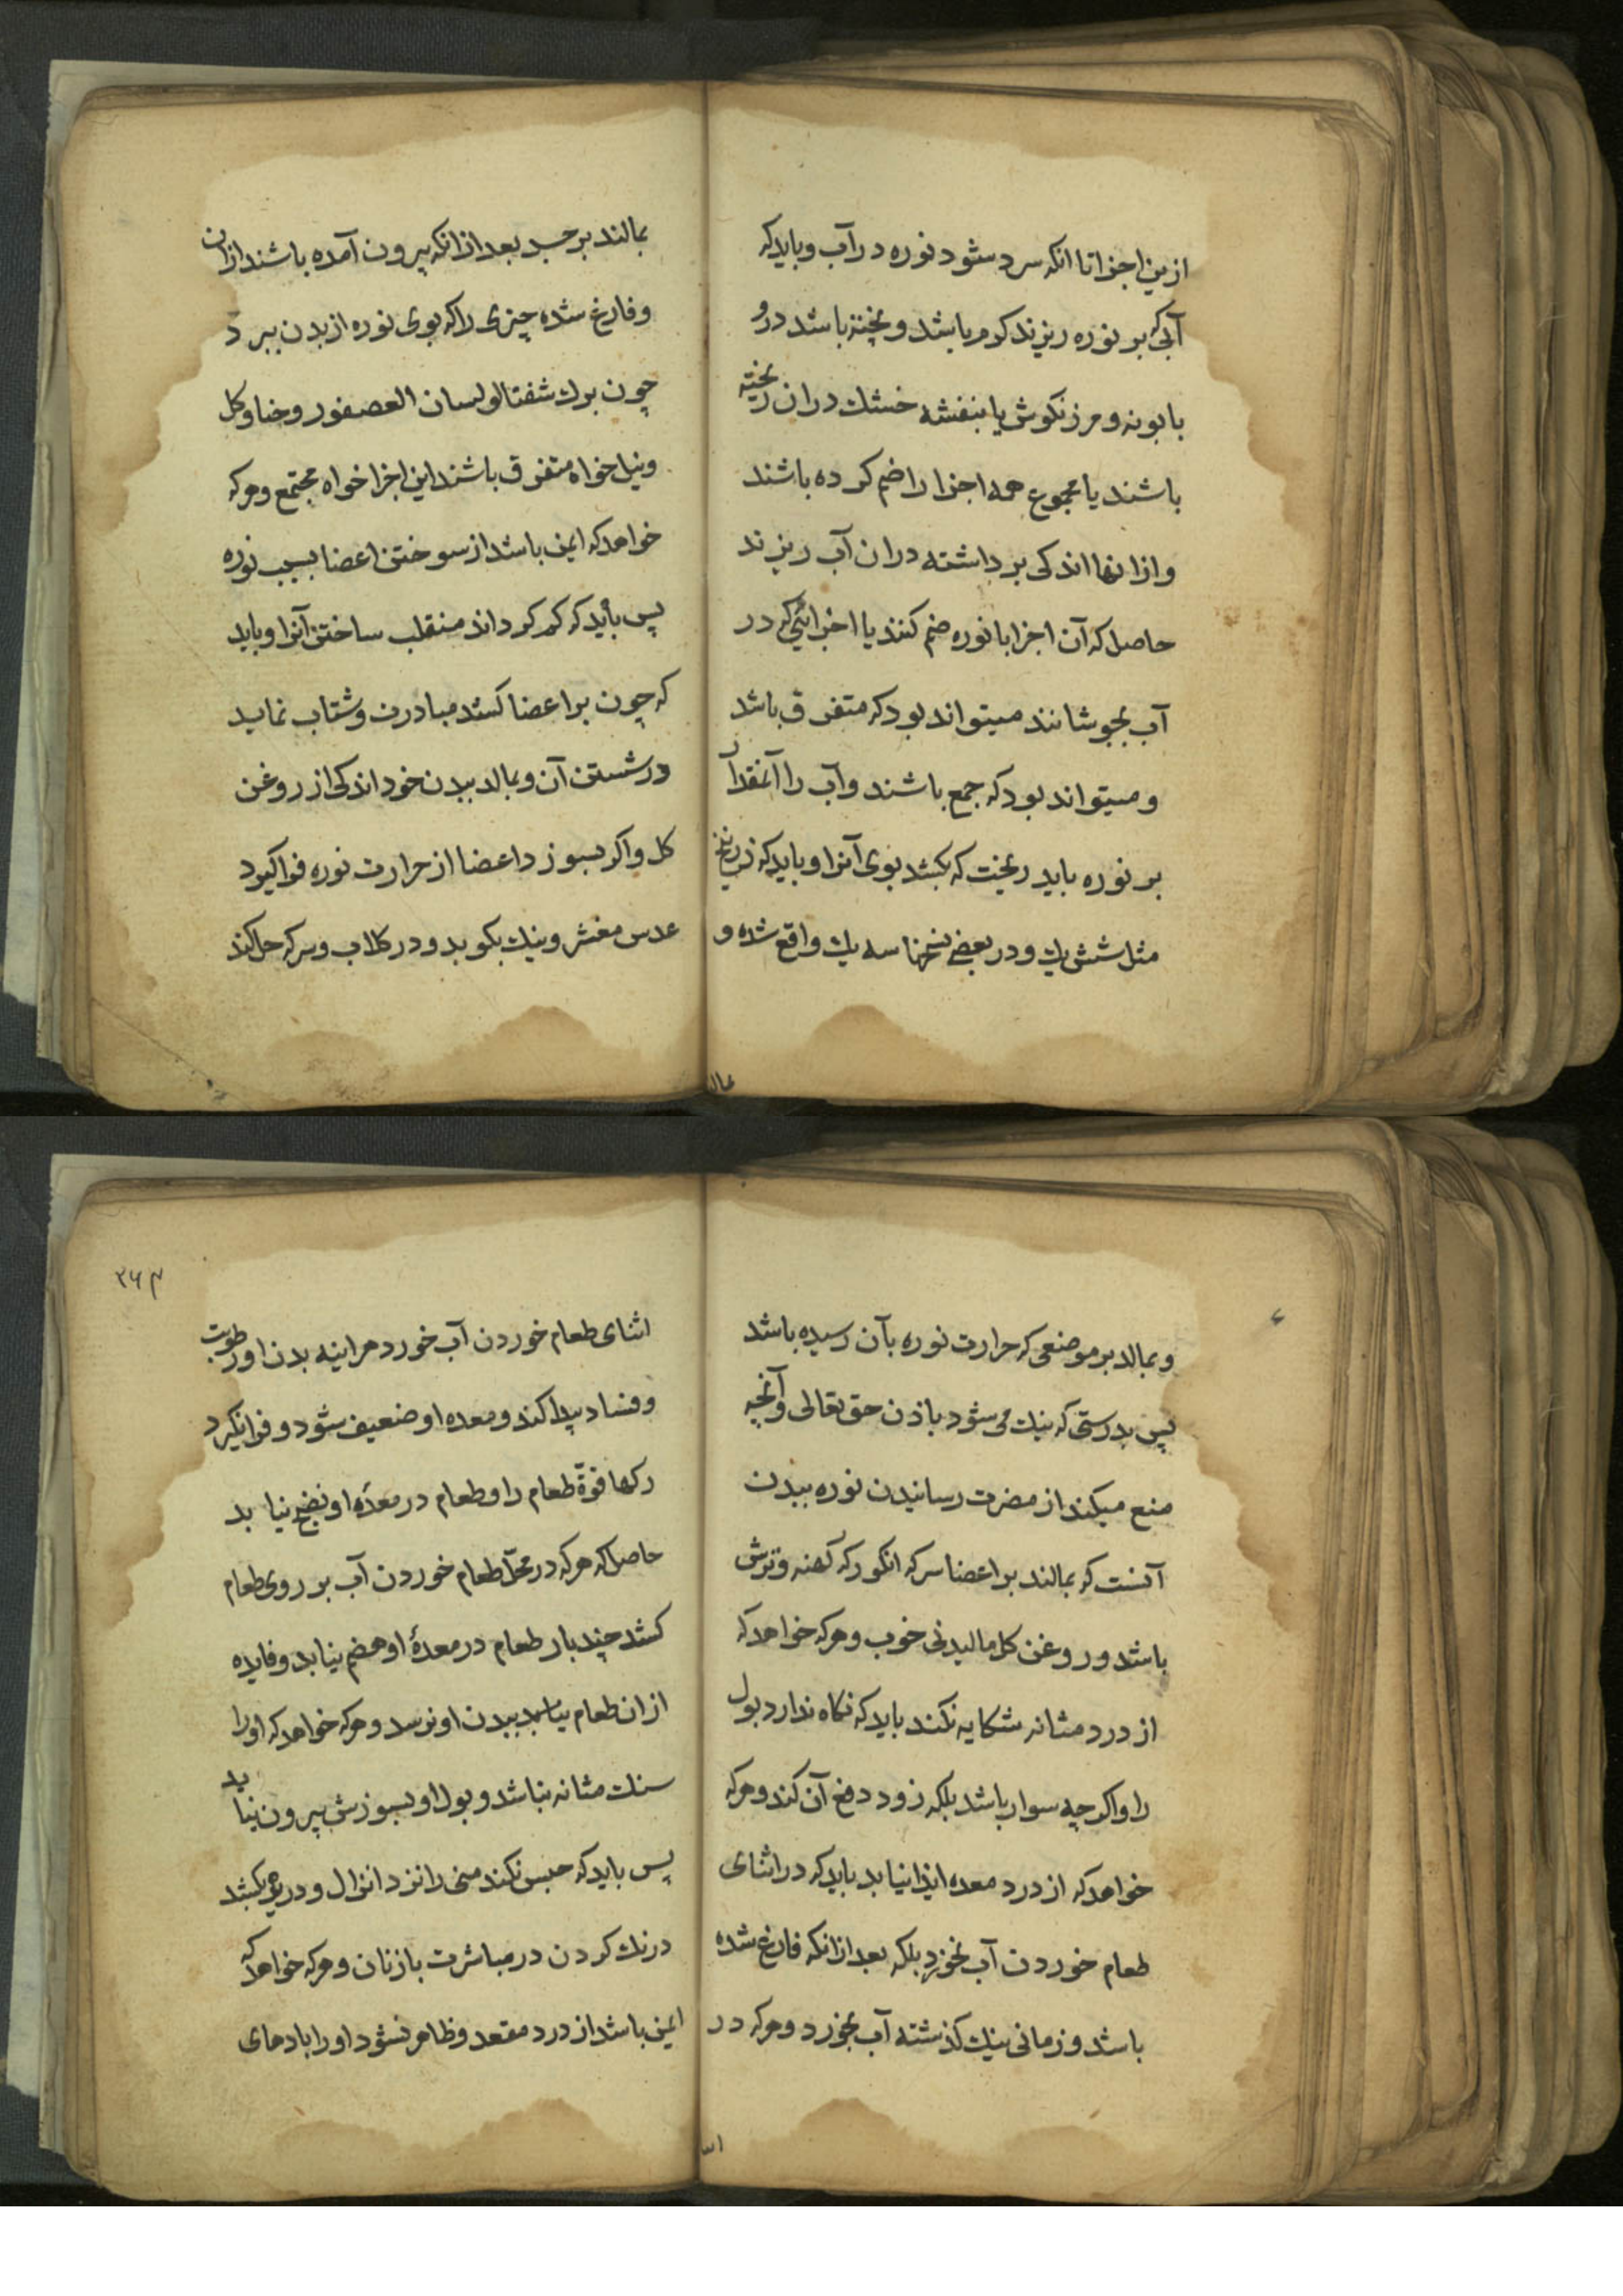 ازین اجزا تا انکه سرد شود نوره در آب و باید که
آبی که بر نوره ریزند کرم باشد و پخته باشد درو
بابونه و مرزنکوش یا بنفشه خشك دران ریخته
باشند یا مجموع همه اجزا را ضم کرده باشند
و ازانها اندکی برداشته دران آب ریزند
حاصل که آن اجزا با نوره ضم کنند یا اجزائی که در
آب بجوشانند میتواند بود که متفرق باشد
و میتواند بود که جمع باشند و آب را آنقدر
بر نوره باید ریخت که بکشد بوی آنرا و باید که زرنیخ
مثل شش یك و در بعضی نسخها سه یك واقع شده و
بمالند
بمالند بر جسد بعد ازانکه بیرون آمده باشند ازان
و فارغ شده چیزی را که بوی نوره از بدن ببرد
چون برك شفتالو لسان العصفور و حنا و کل
و نیل خواه متفرق باشند این اجزا خواه مجتمع و هر که
خواهد که ایمن باشد از سوختن اعضا بسبب نوره
پس باید که کم کرداند منقلب ساختن آنرا و باید
که چون بر اعضا کشد مبادرت و شتاب نماید
در شستن آن و بمالد ببدن خود اندکی از روغن
کل و اکر بسوزد اعضا از حرارت نوره فرا کیرد
عدس مقشر و نیك بکوبد و در کلاب و سرکه حل کند
و بمالد بر موضعی که حرارت نوره بآن رسیده باشد
پس بدرستی که نیك می شود باذن حق تعالی و آنچه
منع میکند از مضرت رسانیدن نوره ببدن
آنست که بمالند بر اعضا سرکه انکور که کهنه و ترش
باشد و روغن کل مالیدنی خوب و هر که خواهد که
از درد مثانه شکایه نکند باید که نکاه ندارد بول
را و اکر چه سوار باشد بلکه زود دفع آن کند و هر که
خواهد که از درد معده ایذا نیابد باید که در اثنای
طعام خوردن آب نخورد بلکه بعد ازانکه فارغ شده
باشد و زمانی نیك کذشته آب بخورد و هر که در
۲۶۳
اثنای طعام خوردن آب خورد هراینه بدن او رطوبت
و فساد پیدا کند و معده او ضعیف شود و فرا نکیرد
رکها قوة طعام را و طعام در معدۀ او نضج نیابد
حاصل که هر که در محل طعام خوردن آب بر روی طعام
کشد چند بار طعام در معدۀ او هضم نیابد و فایده
ازان طعام ببدن او نرسد و هر که خواهد که او را
سنك مثانه نباشد و بول او بسوزش بیرون نیاید
پس باید که حبس نکند منی را نزد انزال و دیر نکشد
درنك کردن در مباشرت با زنان و هر که خواهد که
ایمن باشد از درد مقعد و ظاهر نشود او را بادهای